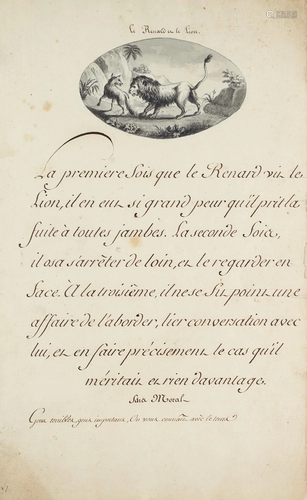 Le Renard et le Lion.
La premiere fois que le Renard vit le
Lion, il en eut si grand peur qu'il prit la
fuite à toutes jambes. La seconde fois,
il osa s'arrêter de loin, et le regarder en
face. À la troisième, il ne se fit point une
affaire de l'aborder, lier conversation avec
lui, et en faire précisement le cas qu'il
méritait et rien davantage.
Moral
Gens importans, On vous connaît avec le tems.